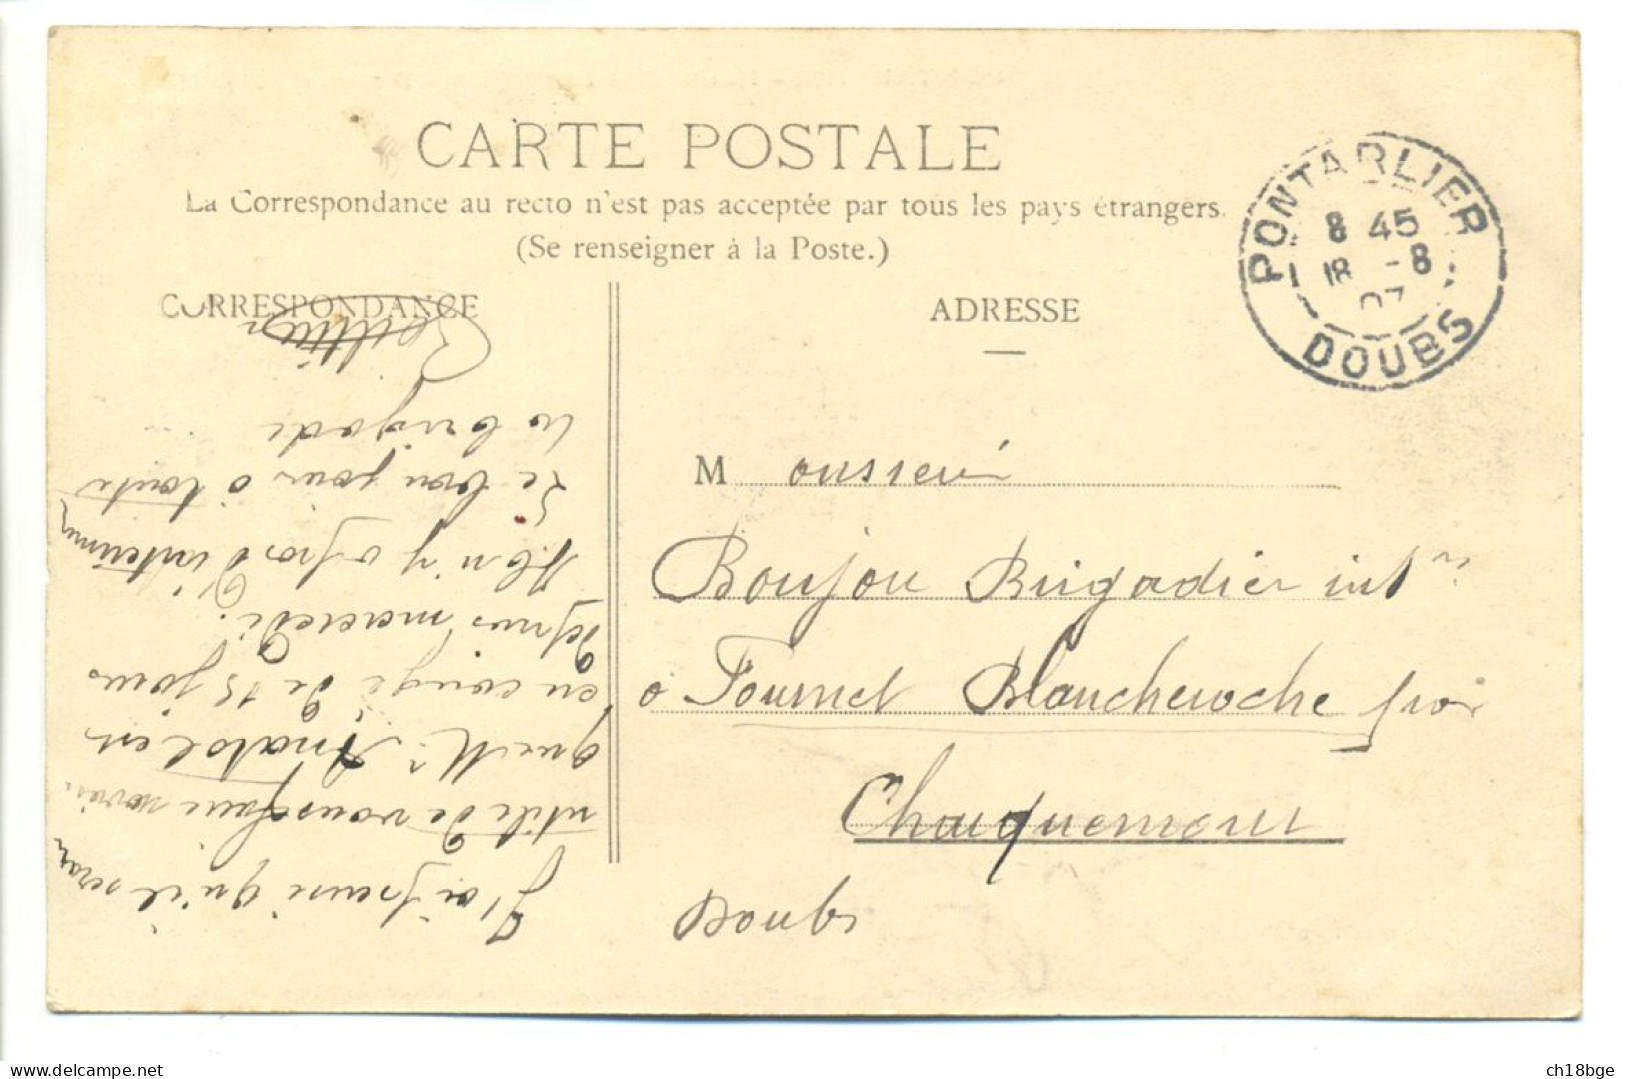 CARTE POSTALE
La Correspondance au recto n'est pas acceptée par tous les pays étrangers.
(Se renseigner à la Poste.)
CORRESPONDANCE
ADRESSE
PONTARLIER
8 45
18 -8
07
DOUBS
J'ai pensé qu'il serai
utile de vous faire savoir
que Mr Anatol est
en congé de 15 jours
depuis mercredi.
Il n'y a pas d'interimer
Le bon jour à toute
la brigade
Monsieur
Boujou Brigadier int
à Fournet Blancheroche par
Charquemont
Doubs
delcampe.net
ch18bge